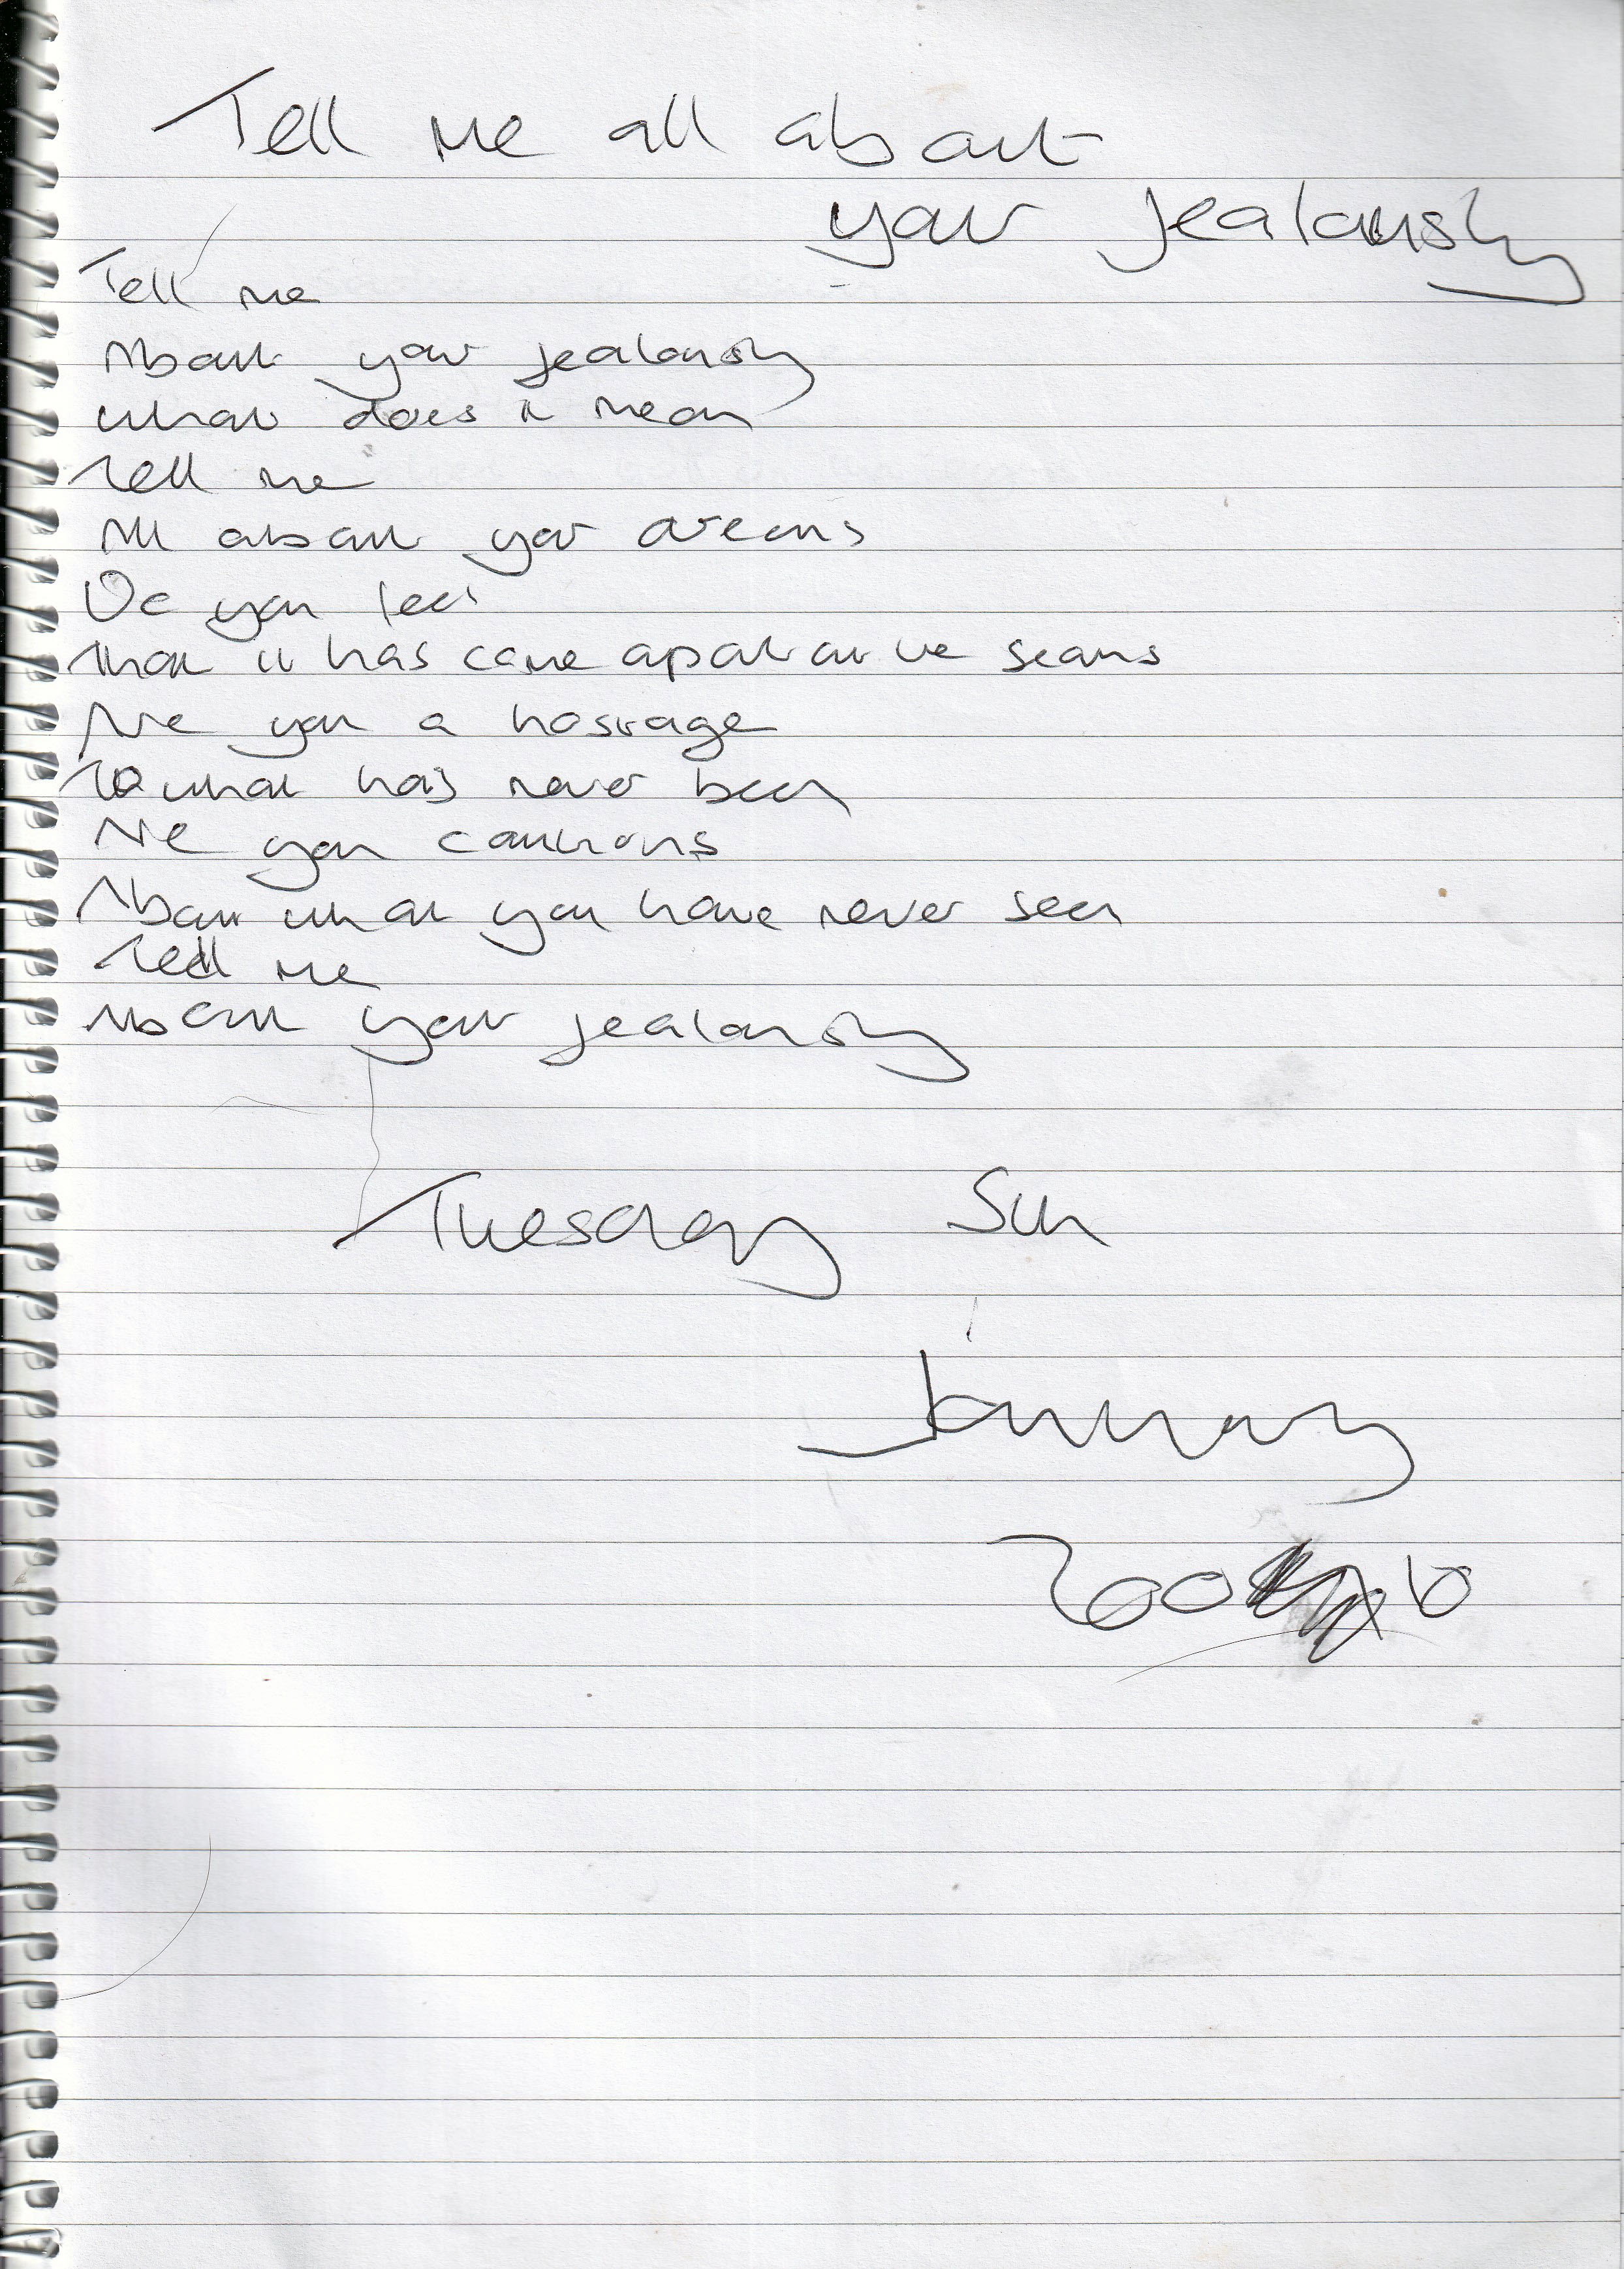 Tell me all about
your jealously
Tell me
About your jealously
what does it mean
Tell me
All about your dreams
Do you feel
That it has come apart at the seams
Are you a hostage
To what has never been
Are you cautious
About what you have never seen
Tell me
About your jealously
Tuesday 5th
January
2010